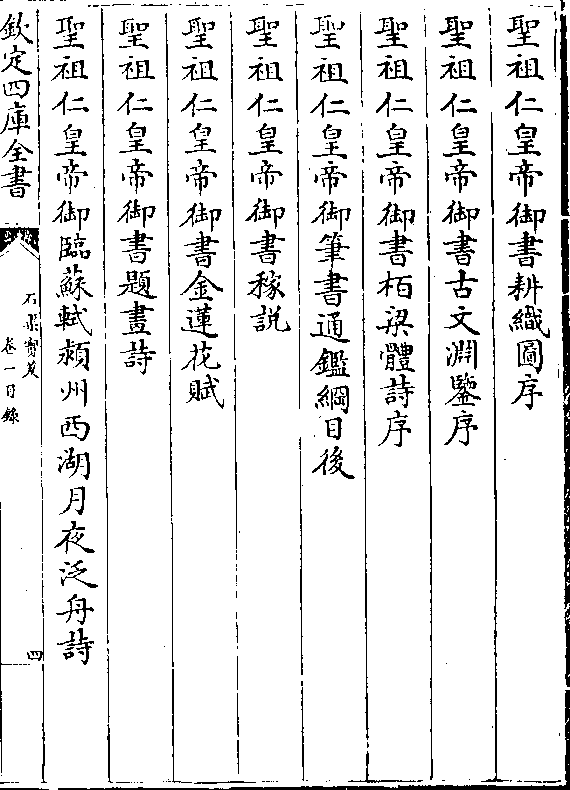 聖祖仁皇帝御書耕織圖序
聖祖仁皇帝御書古文淵鑒序
聖祖仁皇帝御書栢梁體詩序
聖祖仁皇帝御筆書通鑑綱目後
聖祖仁皇帝御書稼説
聖祖仁皇帝御書金蓮花賦
聖祖仁皇帝御書題畫詩
聖祖仁皇帝御臨蘇軾潁州西湖月夜泛舟詩
欽定四庫全書
石渠寶笈
卷一目錄
四